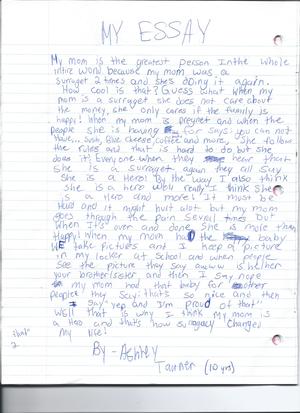 MY ESSAY
My mom is the greatest person In the whole
intire world because my mom was a
surroget 2 times and she's doing it again.
How cool is that? Guess what when my
mom is a surroget she does not care about
the money, she only cares if the family is
happy! When my mom is pregnet and when the
people she is having for says: you can not
have... Sushi, Blue cheese, coffee and more, She follow
the rules and that is hard to do but she
does it! Everyone when they hear that
She is a surroget again they all say
She is a hero! By the way I also think
she is a hero well really I think She
is a Hero and more! It must be
Hard and it might hurt alot but my mom
goes through the pain Sevrll times but
when It's over and done She is more than
Happy! When my mom had the baby
WE take pictures and I keep a picture
in my locker at School and when people
see the picture they say awww is he/her
your brother/sister and then I say nope
my mom had that baby for other
people! they say: that's so nice and then
I say "yep and I'm proud of that"
Well that is why I think my mom is
a Hero and that's how surrogacy changed
my life!
By - Ashley
Tanner (10 yrs)